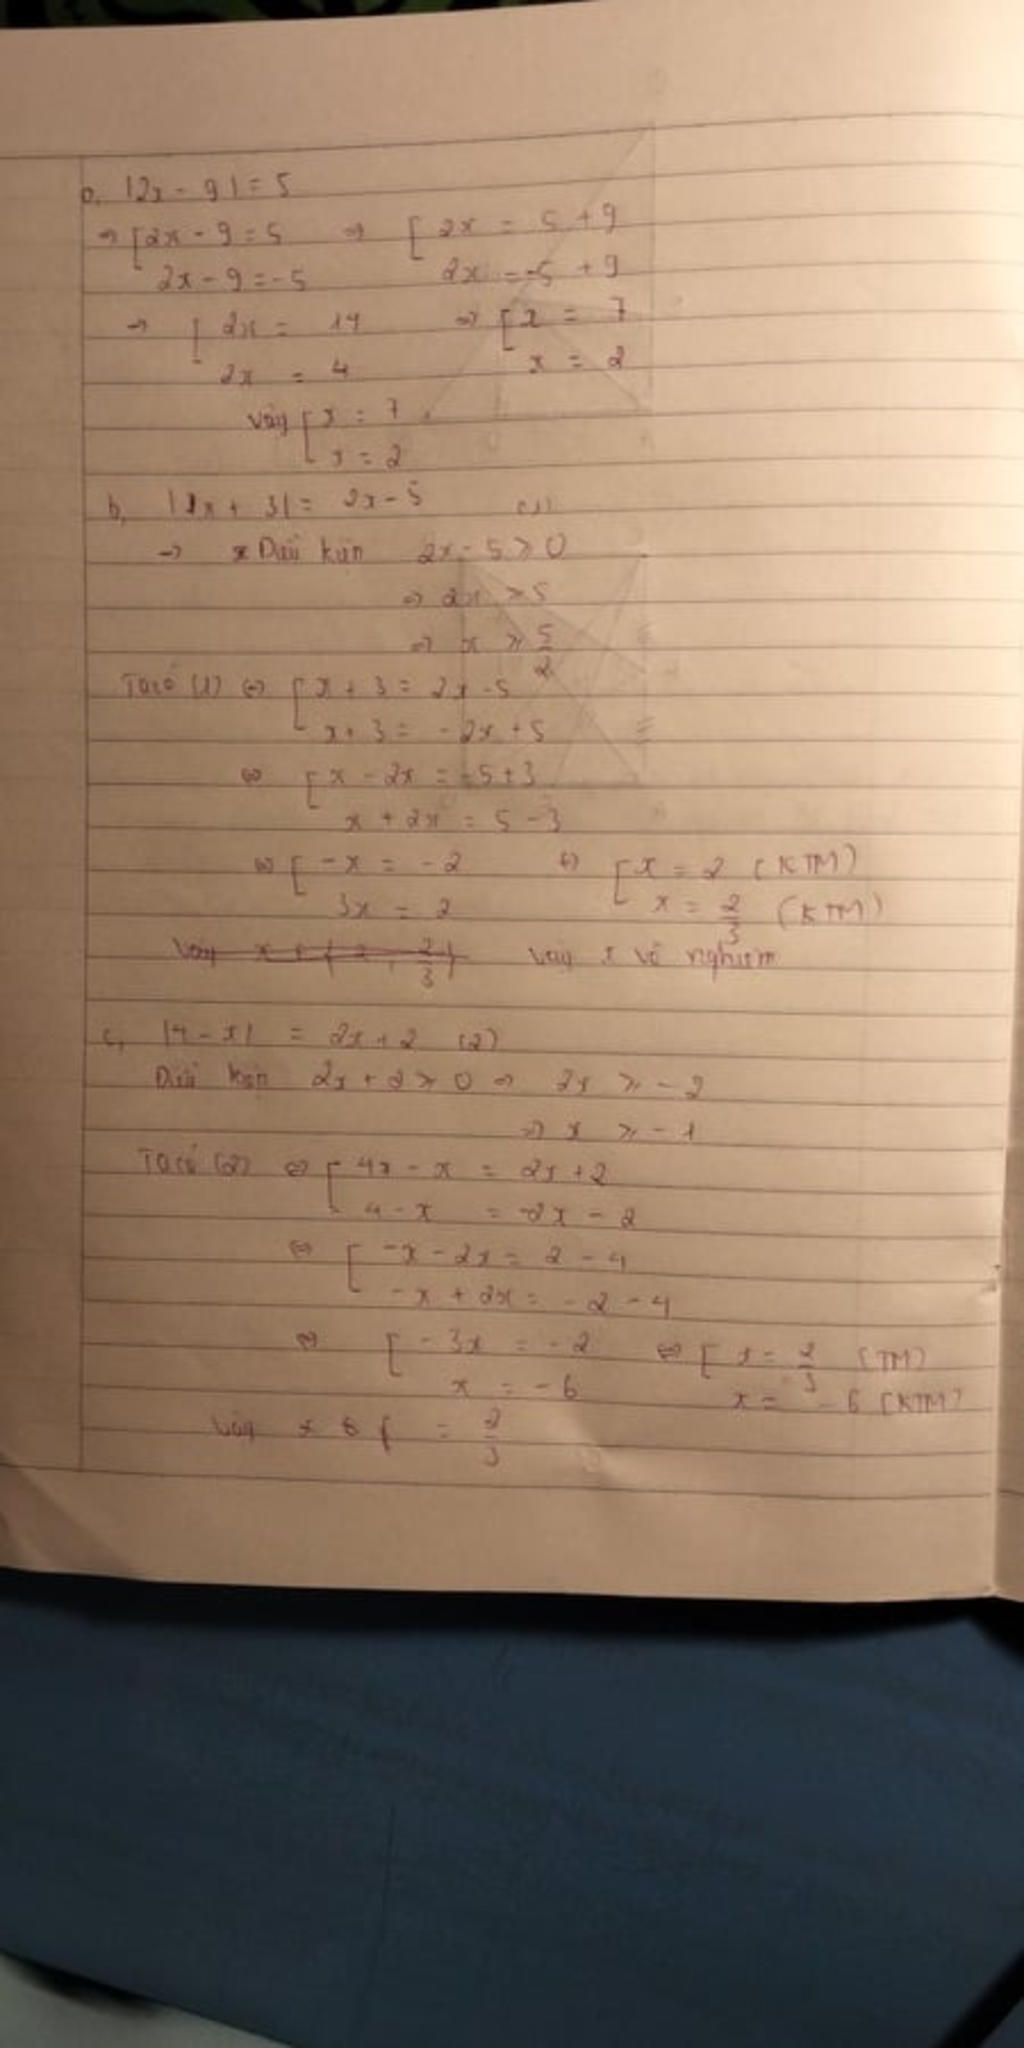 a. |2x - 9| = 5
⇒ [2x - 9 = 5 ⇒ [2x = 5 + 9
2x - 9 = -5 2x = -5 + 9
⇒ [2x = 14 ⇒ [x = 7
2x = 4 x = 2
Vậy [x = 7
x = 2
b, |x + 3| = 2x - 5 (1)
→ * Điều kiện 2x - 5 ≥ 0
⇒ 2x ≥ 5
⇒ x ≥ 5/2
Ta có (1) ⇔ [x + 3 = 2x - 5
x + 3 = -2x + 5
⇔ [x - 2x = -5 + 3
x + 2x = 5 - 3
⇔ [-x = -2 ⇔ [x = 2 (KTM)
3x = 2 x = 2/3 (KTM)
Vậy x vô nghiệm
c, |4 - x| = 2x + 2 (2)
Điều kiện 2x + 2 ≥ 0 ⇒ 2x ≥ -2
⇒ x ≥ -1
Ta có (2) ⇔ [4x - x = 2x + 2
4 - x = -2x - 2
⇔ [-x - 2x = 2 - 4
-x + 2x = -2 - 4
⇔ [-3x = -2 ⇔ [x = 2/3 (TM)
x = -6 x = -6 (KTM)
Vậy x = 2/3